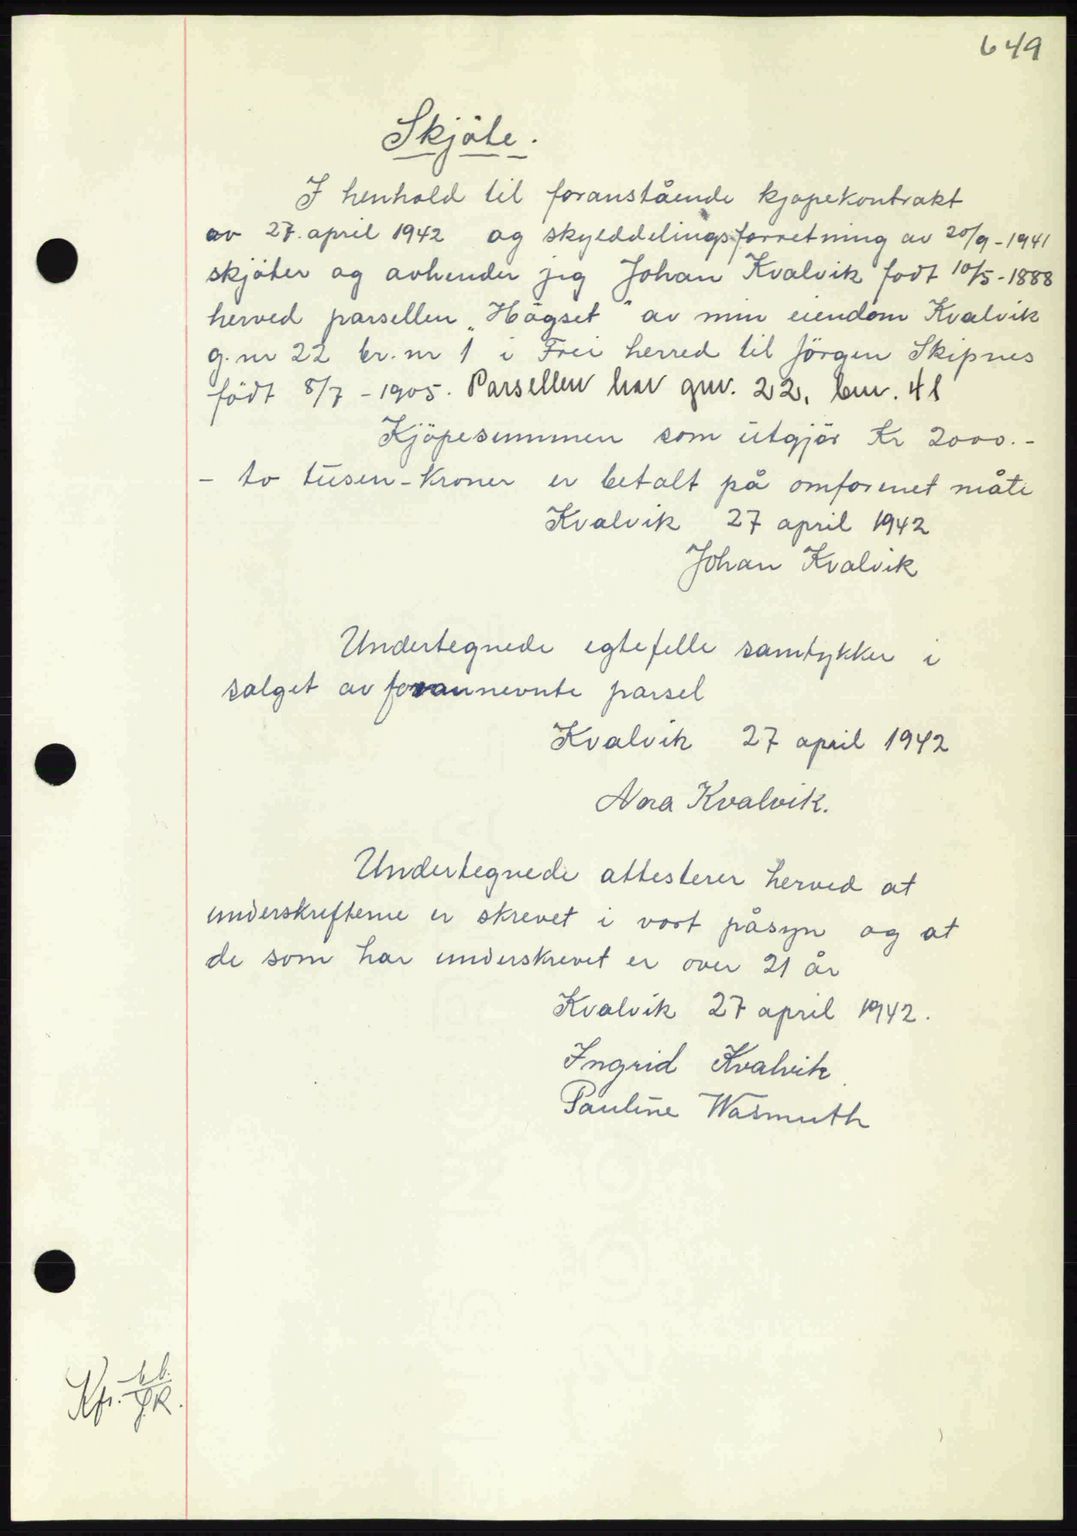 649
Skjöte.
I henhold til foranstående kjøpekontrakt
av 27. april 1942 og skylddelingsforretning av 20/9-1941
skjöter og avhender jeg Johan Kvalvik født 10/5-1888
herved parsellen "Högset" av min eiendom Kvalvik
g.nr 22 br.nr 1 i Frei herred til Jörgen Skipnes
født 8/7 - 1905. Parsellen har gnr. 22, bnr. 41
Kjöpesummen som utgjör Kr 2000.-
- to tusen-kroner er betalt på omforenet måte
Kvalvik 27 april 1942
Johan Kvalvik
Undertegnede egtefelle samtykker i
salget av forannevnte parsel
Kvalvik 27 april 1942
Nora Kvalvik.
Undertegnede attesterer herved at
underskrifterne er skrevet i vort påsyn og at
de som har underskrevet er over 21 år
Kvalvik 27 april 1942.
Ingrid Kvalvik
Pauline Wasmuth
Kfr.